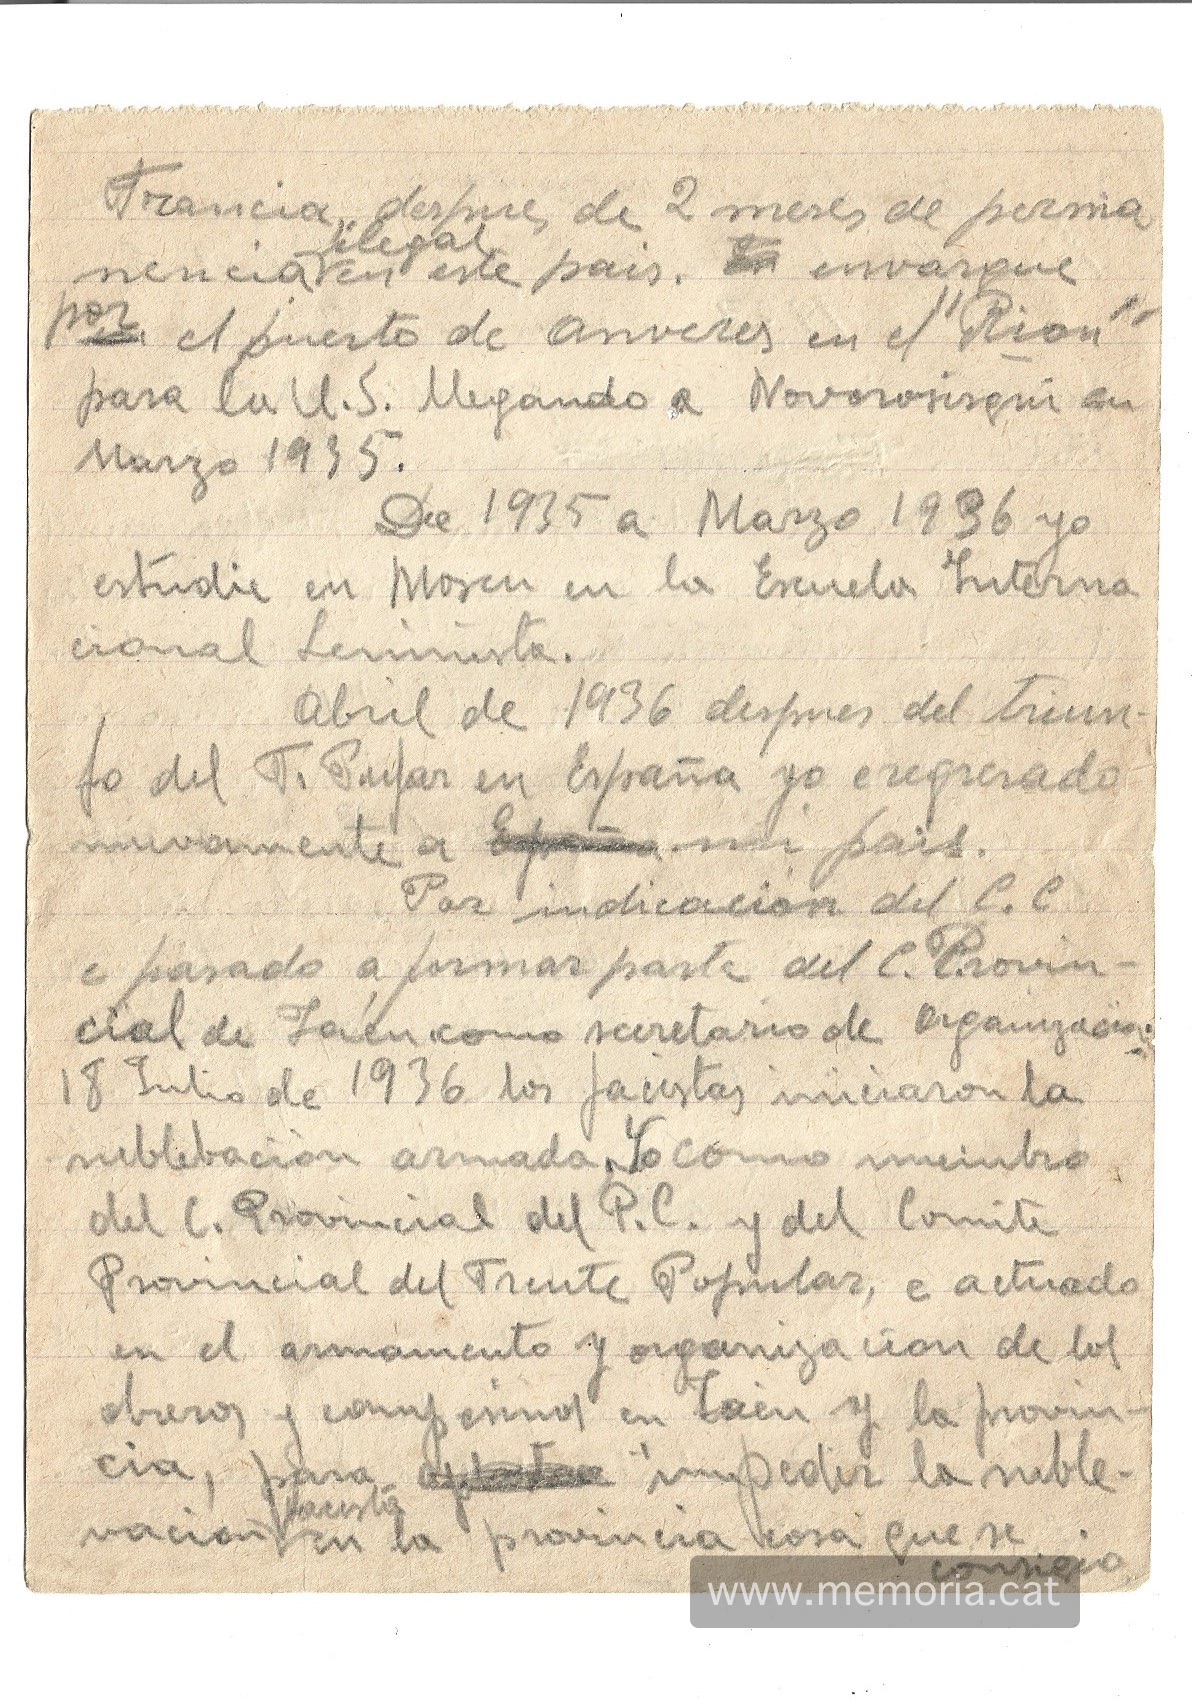 Francia, despues de 2 meses de perma
nencia ilegal en este pais. En envarque
por el puerto de Anveres en el "Rion"
para la U.S. llegando a Novorosisqui en
Marzo 1935.
De 1935 a Marzo 1936 yo
estudie en Moscu en la Escuela Interna
cional Leninista.
Abril de 1936 despues del triun-
fo del F. Pupar en España yo e regresado
nuevamente a España mi pais.
Por indicación del C.C
e pasado a formar parte del C. Provin-
cial de Jaén como secretario de Organización.
18 Julio de 1936 los facistas iniciaron la
sublebación armada, Yo como miembro
del C. Provincial del P.C. y del Comite
Provincial del Frente Popular, e actuado
en el armamento y organización de los
obreros y campesinos en Jaén y la provin-
cia, para impedir la suble-
vación facista en la provincia cosa que se
consigio
www.memoria.cat